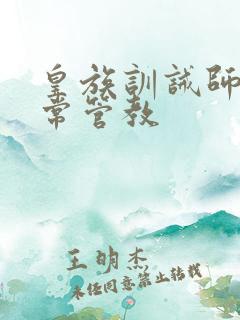 皇族訓誡師
常管教
王明杰
未经同意禁止转载